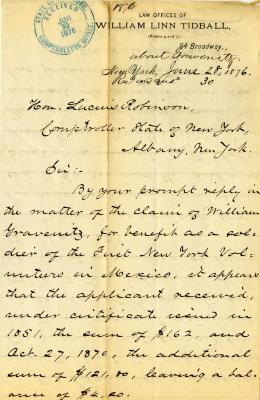 1876
LAW OFFICES OF
WILLIAM LINN TIDBALL,
(Rooms 4 and 7)
84 Broadway,
about Gravenitz
New York, June 28, 1876.
30
RECEIVED
JUN
1876
COMPTROLLER'S OFFICE
Hon. Lucius Robinson,
Comptroller State of New York,
Albany, New York.
Sir:-
By your prompt reply in
the matter of the claim of William
Gravenitz, for benefit as a sol-
dier of the First New York Vol-
unteers in Mexico, it appears
that the applicant received,
under certificate issued in
1851, the sum of $162, and
Oct. 27, 1870, the additional
sum of $121.80, leaving a bal-
ance of $4.20.